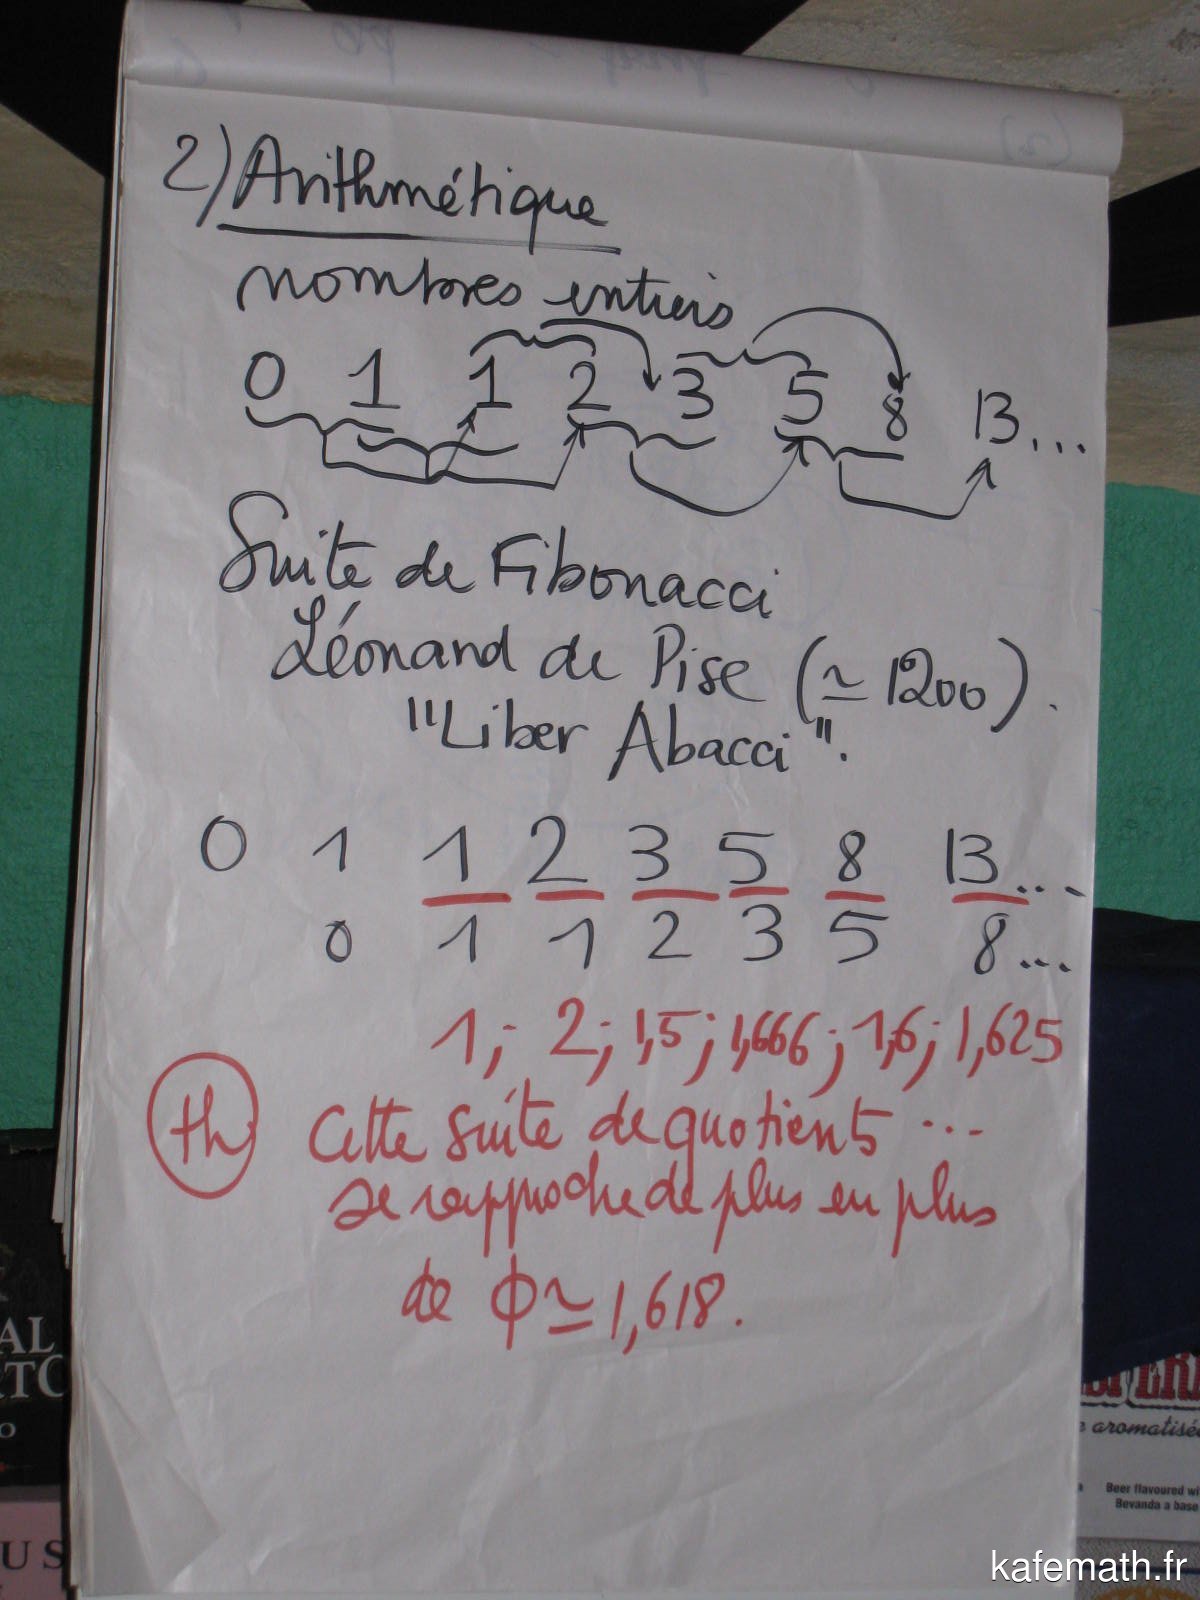 2) Arithmétique
nombres entiers
0 1 1 2 3 5 8 13...
Suite de Fibonacci
Léonard de Pise (≃ 1200).
"Liber Abacci".
0 1 1 2 3 5 8 13...
0 1 1 2 3 5 8...
1; 2; 1,5; 1,666; 1,6; 1,625
th Cette suite de quotients ...
se rapproche de plus en plus
de ϕ ≃ 1,618.
AL
RTO
O
US
aromatisée
Beer flavoured wi
Bevanda a base
kafemath.fr